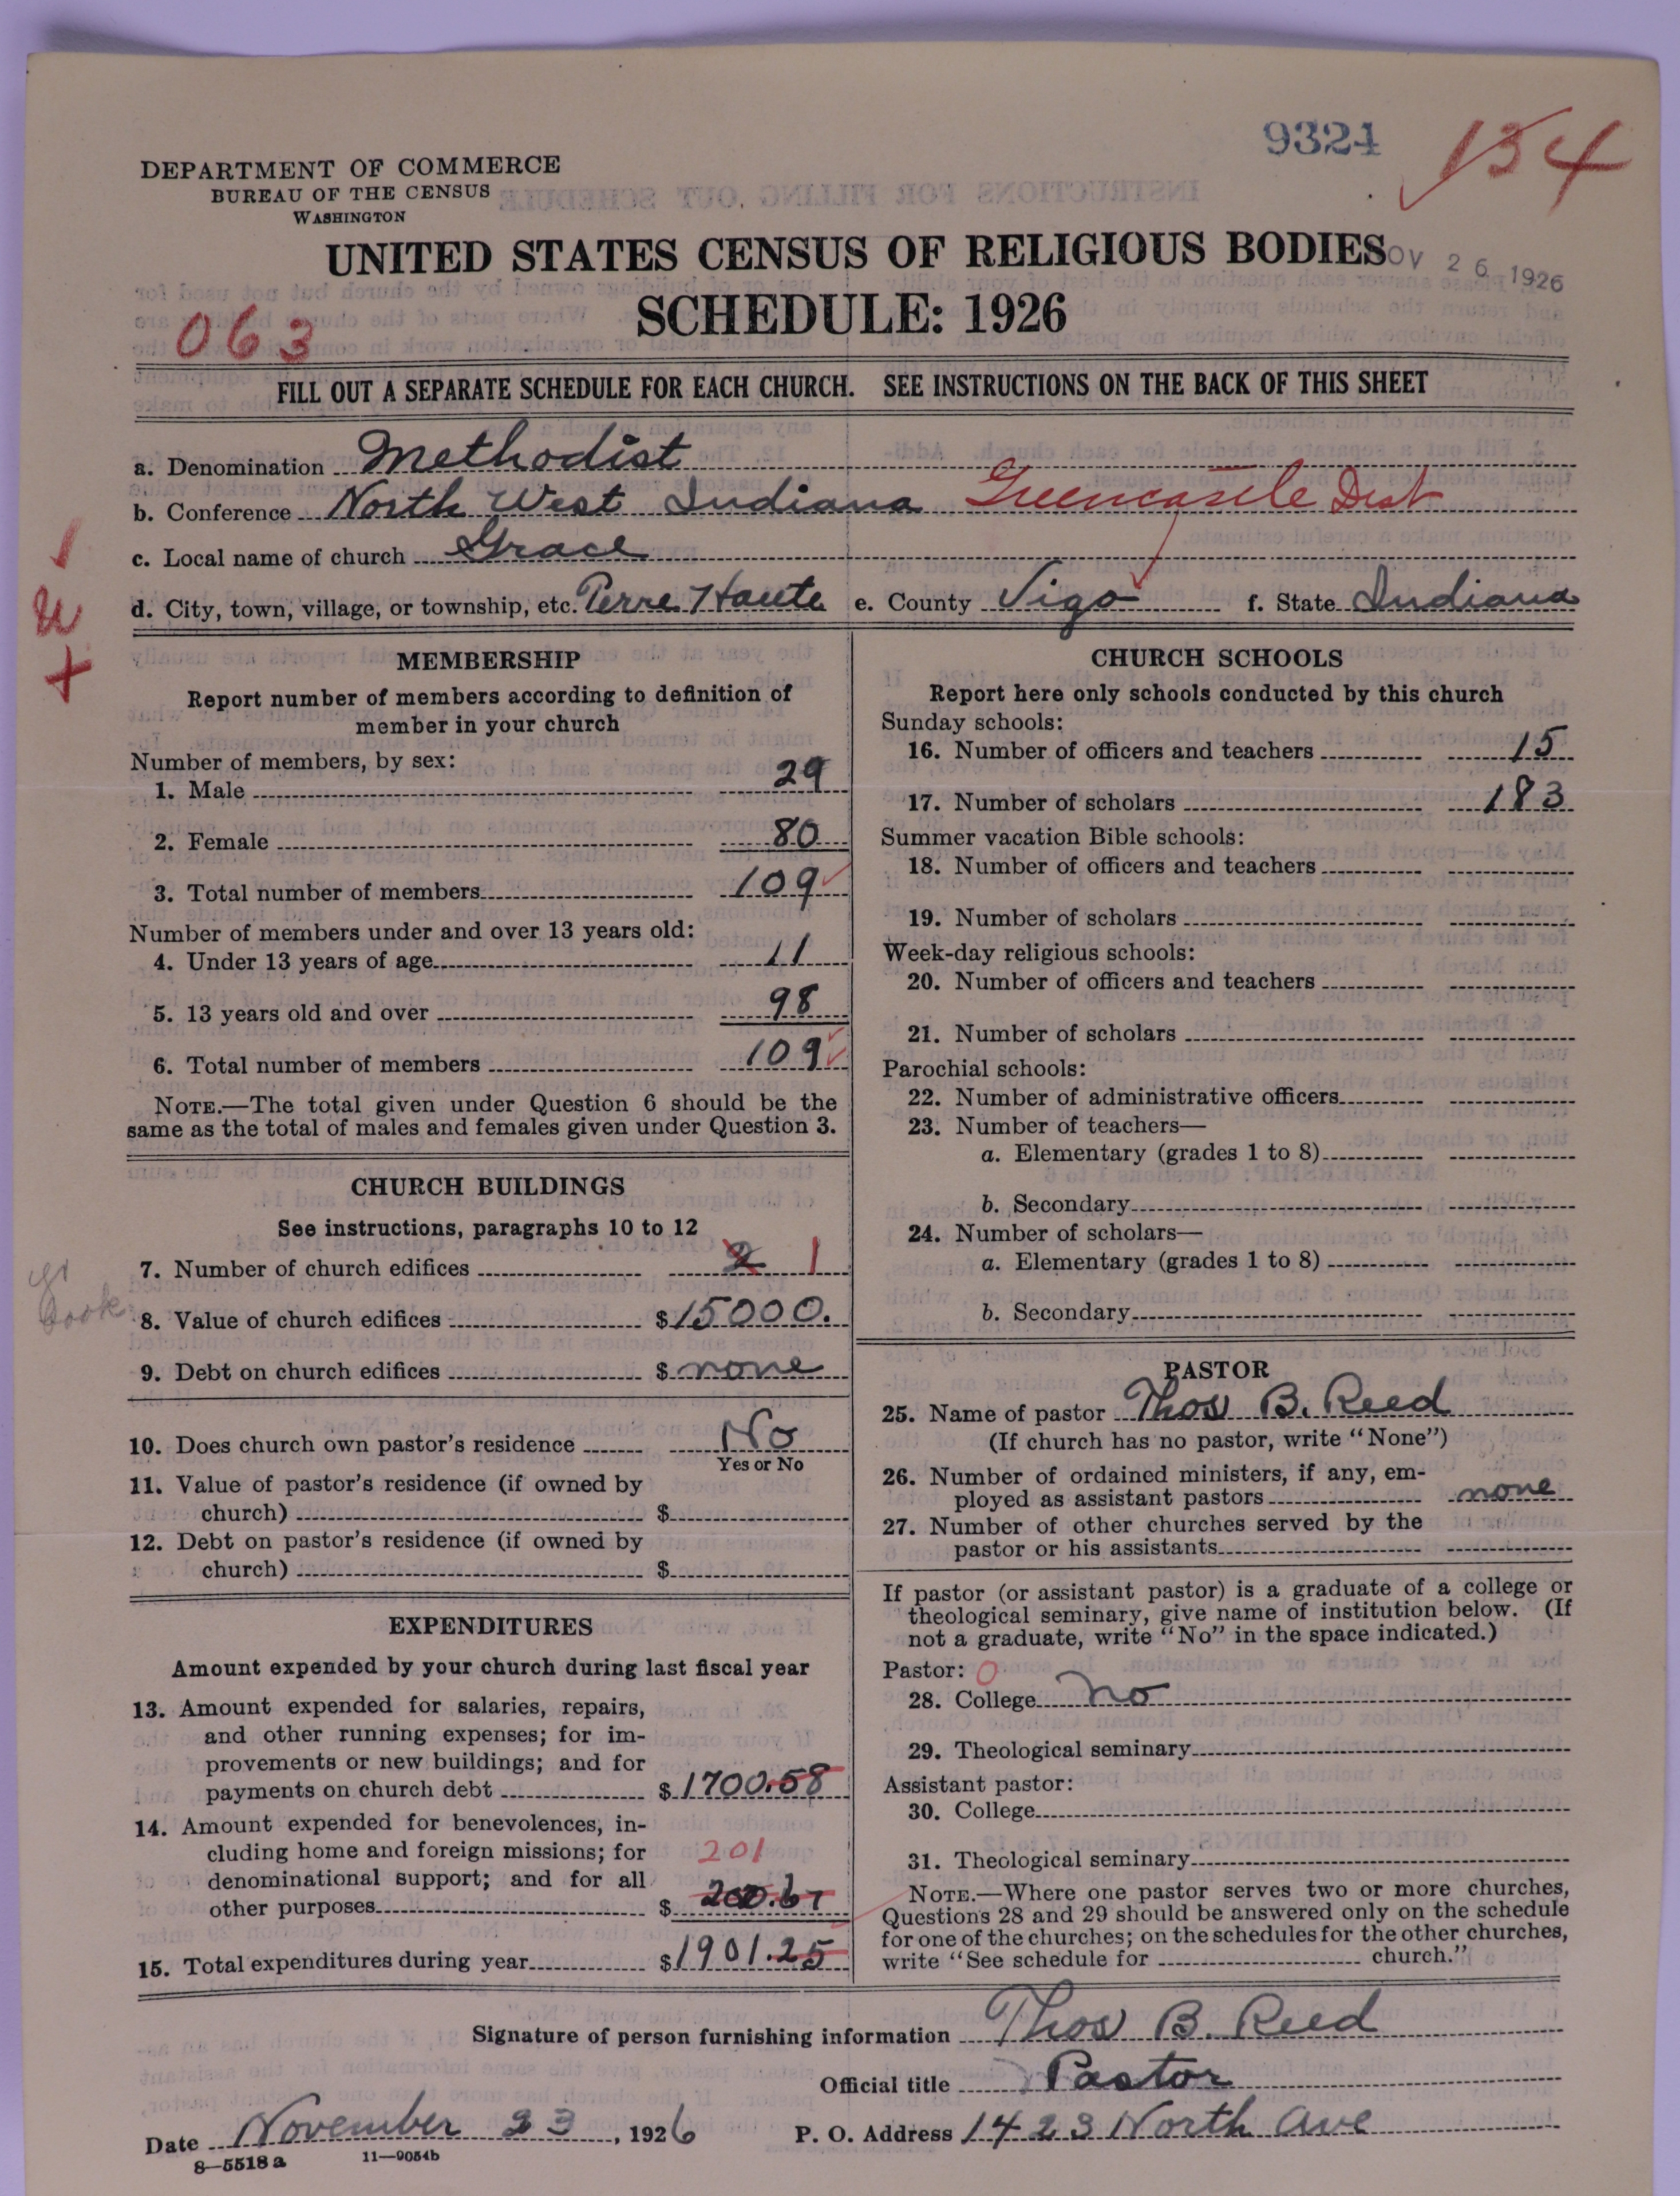 9324 134
DEPARTMENT OF COMMERCE
BUREAU OF THE CENSUS
WASHINGTON
UNITED STATES CENSUS OF RELIGIOUS BODIES
OV 26 1926
SCHEDULE: 1926
063
FILL OUT A SEPARATE SCHEDULE FOR EACH CHURCH. SEE INSTRUCTIONS ON THE BACK OF THIS SHEET
a. Denomination Methodist
b. Conference North West Indiana Greencastle Dist
c. Local name of church Grace
d. City, town, village, or township, etc. Terre Haute e. County Vigo f. State Indiana
MEMBERSHIP
Report number of members according to definition of
member in your church
Number of members, by sex:
1. Male 29
2. Female 80
3. Total number of members 109
Number of members under and over 13 years old:
4. Under 13 years of age 11
5. 13 years old and over 98
6. Total number of members 109
NOTE.—The total given under Question 6 should be the
same as the total of males and females given under Question 3.
CHURCH BUILDINGS
See instructions, paragraphs 10 to 12
7. Number of church edifices 2 1
8. Value of church edifices $15000.
9. Debt on church edifices $ none
10. Does church own pastor's residence No
Yes or No
11. Value of pastor's residence (if owned by
church) $
12. Debt on pastor's residence (if owned by
church) $
EXPENDITURES
Amount expended by your church during last fiscal year
13. Amount expended for salaries, repairs,
and other running expenses; for im-
provements or new buildings; and for
payments on church debt $1700.58
14. Amount expended for benevolences, in-
cluding home and foreign missions; for
201
denominational support; and for all
other purposes $ 200.67
15. Total expenditures during year $1901.25
CHURCH SCHOOLS
Report here only schools conducted by this church
Sunday schools:
16. Number of officers and teachers 15
17. Number of scholars 183
Summer vacation Bible schools:
18. Number of officers and teachers
19. Number of scholars
Week-day religious schools:
20. Number of officers and teachers
21. Number of scholars
Parochial schools:
22. Number of administrative officers
23. Number of teachers—
a. Elementary (grades 1 to 8)
b. Secondary
24. Number of scholars—
a. Elementary (grades 1 to 8)
b. Secondary
PASTOR
25. Name of pastor Thos B. Reed
(If church has no pastor, write "None")
26. Number of ordained ministers, if any, em-
ployed as assistant pastors none
27. Number of other churches served by the
pastor or his assistants
If pastor (or assistant pastor) is a graduate of a college or
theological seminary, give name of institution below. (If
not a graduate, write "No" in the space indicated.)
Pastor: 0
28. College no
29. Theological seminary
Assistant pastor:
30. College
31. Theological seminary
NOTE.—Where one pastor serves two or more churches,
Questions 28 and 29 should be answered only on the schedule
for one of the churches; on the schedules for the other churches,
write "See schedule for church."
Signature of person furnishing information Thos B. Reed
Official title Pastor
Date November 23, 1926 P. O. Address 1423 North Ave
8—5518a 11—9054b